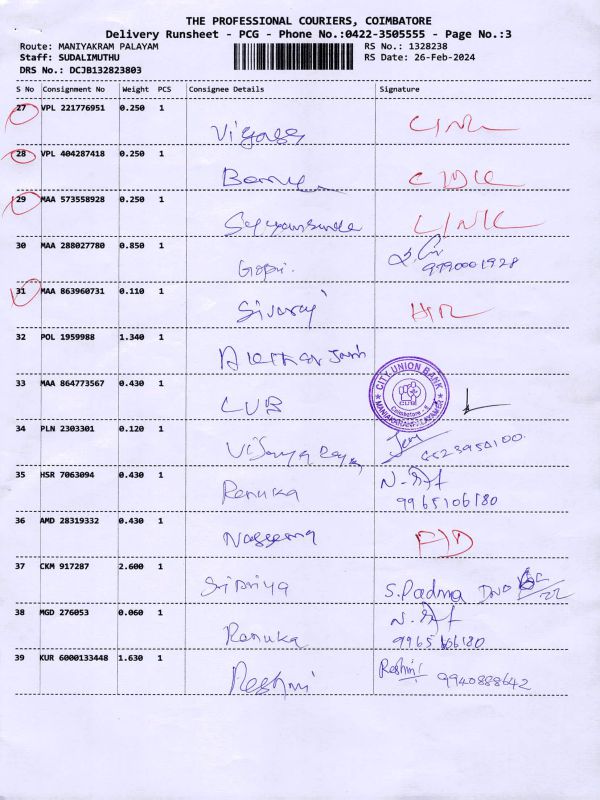 THE PROFESSIONAL COURIERS, COIMBATORE
Delivery Runsheet - PCG - Phone No.:0422-3505555 - Page No.:3
Route: MANIYAKRAM PALAYAM RS No.: 1328238
Staff: SUDALIMUTHU RS Date: 26-Feb-2024
DRS No.: DCJB132823803
S No Consignment No Weight PCS Consignee Details Signature
27 VPL 221776951 0.250 1
28 VPL 404287418 0.250 1
29 MAA 573558928 0.250 1
30 MAA 288027780 0.850 1
Gopi. 9790001928
31 MAA 863960731 0.110 1
Sivaraj
32 POL 1959988 1.340 1
33 MAA 864773567 0.430 1
CUB CITY UNION BANK
34 PLN 2303301 0.120 1
35 HSR 7063094 0.430 1
Renuka 9965106180
36 AMD 28319332 0.430 1
37 CKM 917287 2.600 1
S.Padma
38 MGD 276053 0.060 1
Renuka 9965106180
39 KUR 6000133448 1.630 1
Reshmi Reshmi 9940888642